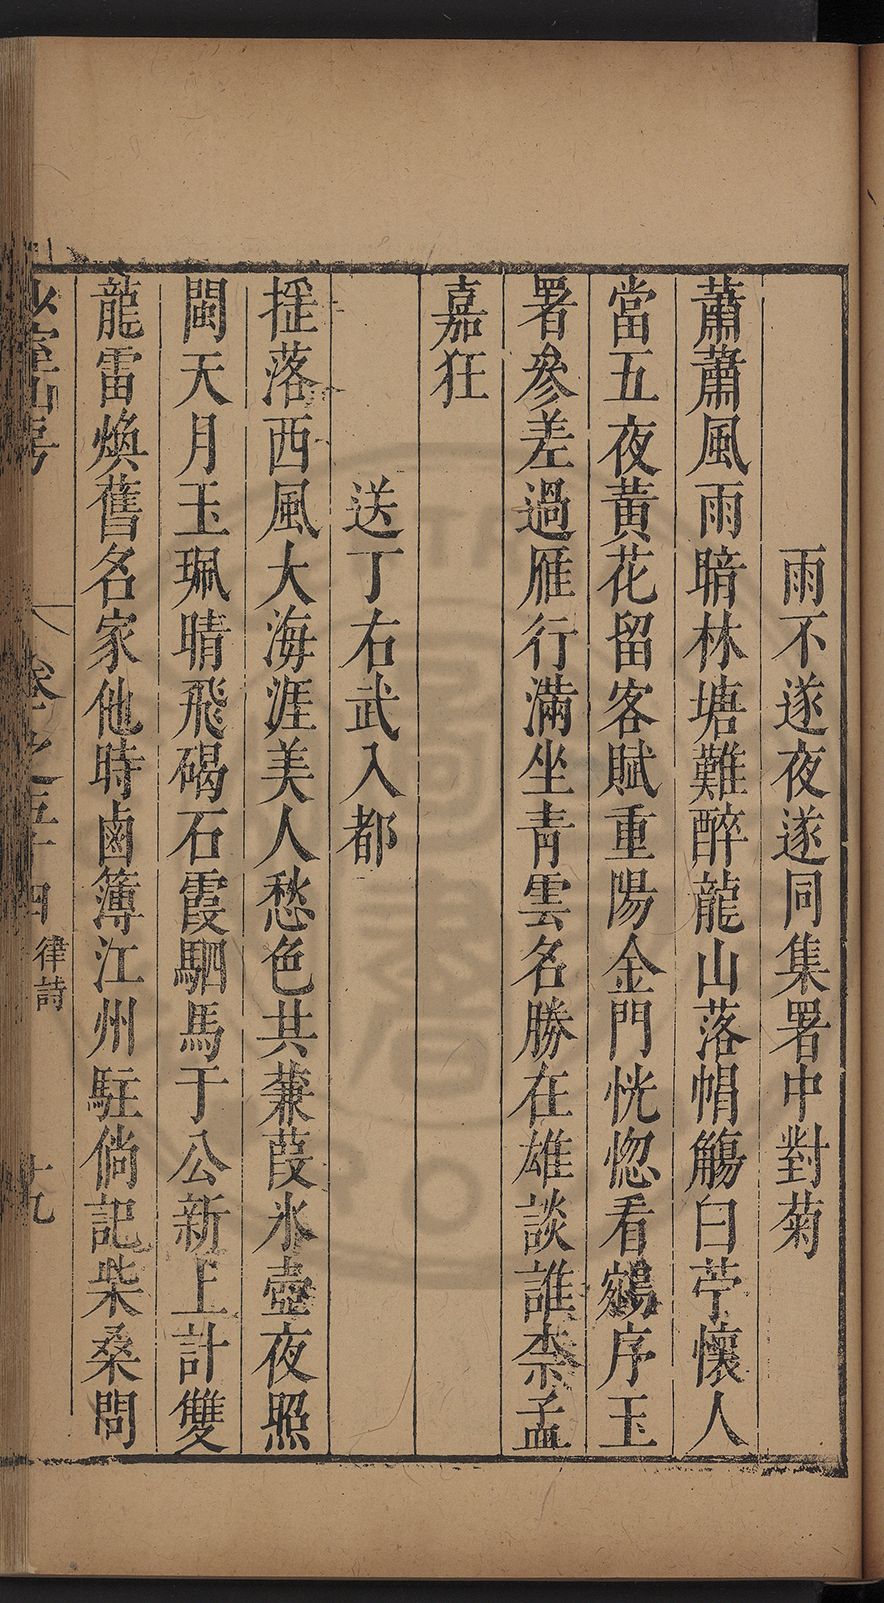 雨不遂夜遂同集署中對菊
蕭蕭風雨暗林塘難醉龍山落帽觴白苧懷人
當五夜黃花留客賦重陽金門恍惚看鵷序玉
署參差過雁行滿坐青雲名勝在雄談誰柰孟
嘉狂
送丁右武入都
搖落西風大海涯美人愁色共蒹葭氷壺夜照
閩天月玉珮晴飛碣石霞駟馬于公新上計雙
龍雷煥舊名家他時鹵簿江州駐倘記柴桑問
少室山房
卷之五十四
律詩
十九